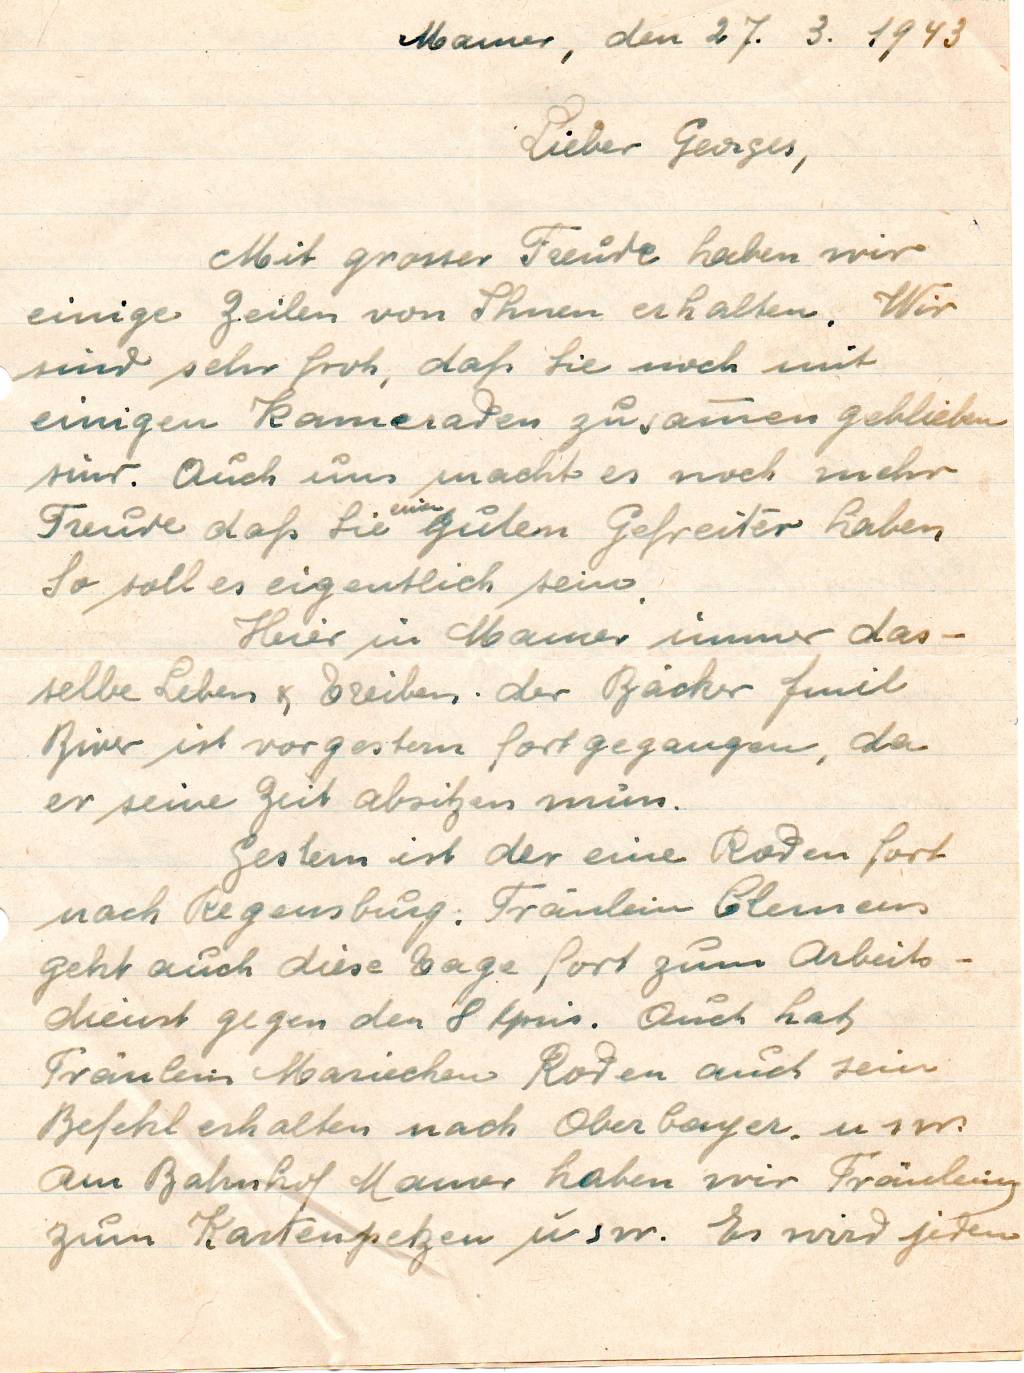 Mamer, den 27. 3. 1943
Lieber Georges,
Mit grosser Freude haben wir
einige Zeilen von Ihnen erhalten. Wir
sind sehr froh, daß Sie noch mit
einigen Kameraden zusamen geblieben
sind. Auch uns macht es noch mehr
Freude daß Sie einen guten Gefreiter haben,
So soll es eigentlich sein.
Heier in Mamer immer das-
selbe Leben & Treiben. der Bäcker Emil
Biver ist vorgestern fortgegangen, da
er seine Zeit absitzen muss.
Gestern ist der eine Roden fort
nach Regensburg. Fräulein Clemens
geht auch diese Tage fort zum Arbeits-
dienst gegen den 8 April. Auch hat
Fräulein Mariechen Roden auch sein
Befehl erhalten nach Oberbayer. usw.
Am Bahnhof Mamer haben wir Fräuleins
zum Kartenpetzen usw. Es wird jeden